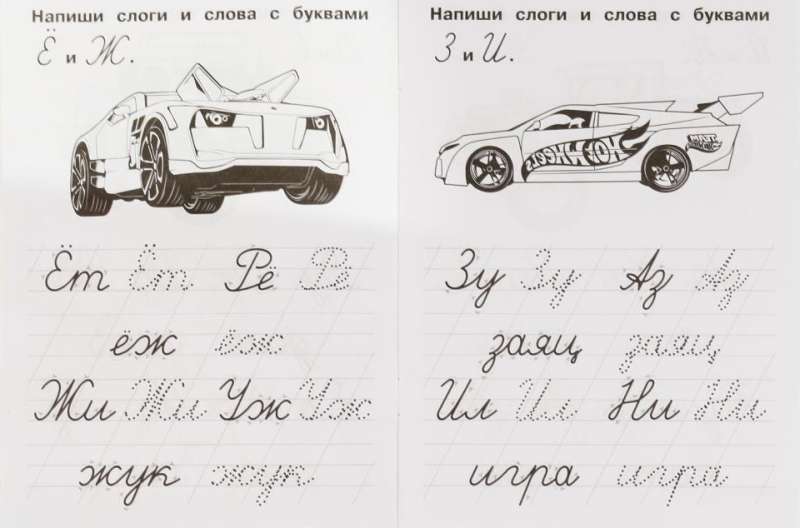 Напиши слоги и слова с буквами
Ё и Ж.
Ёт Ёт Рё Рё
ёж ёж
Жи Жи Уж Уж
жук жук
Напиши слоги и слова с буквами
З и И.
HOT WHEELS
Зу Зу Аз Аз
заяц заяц
Ил Ил Ни Ни
игра игра